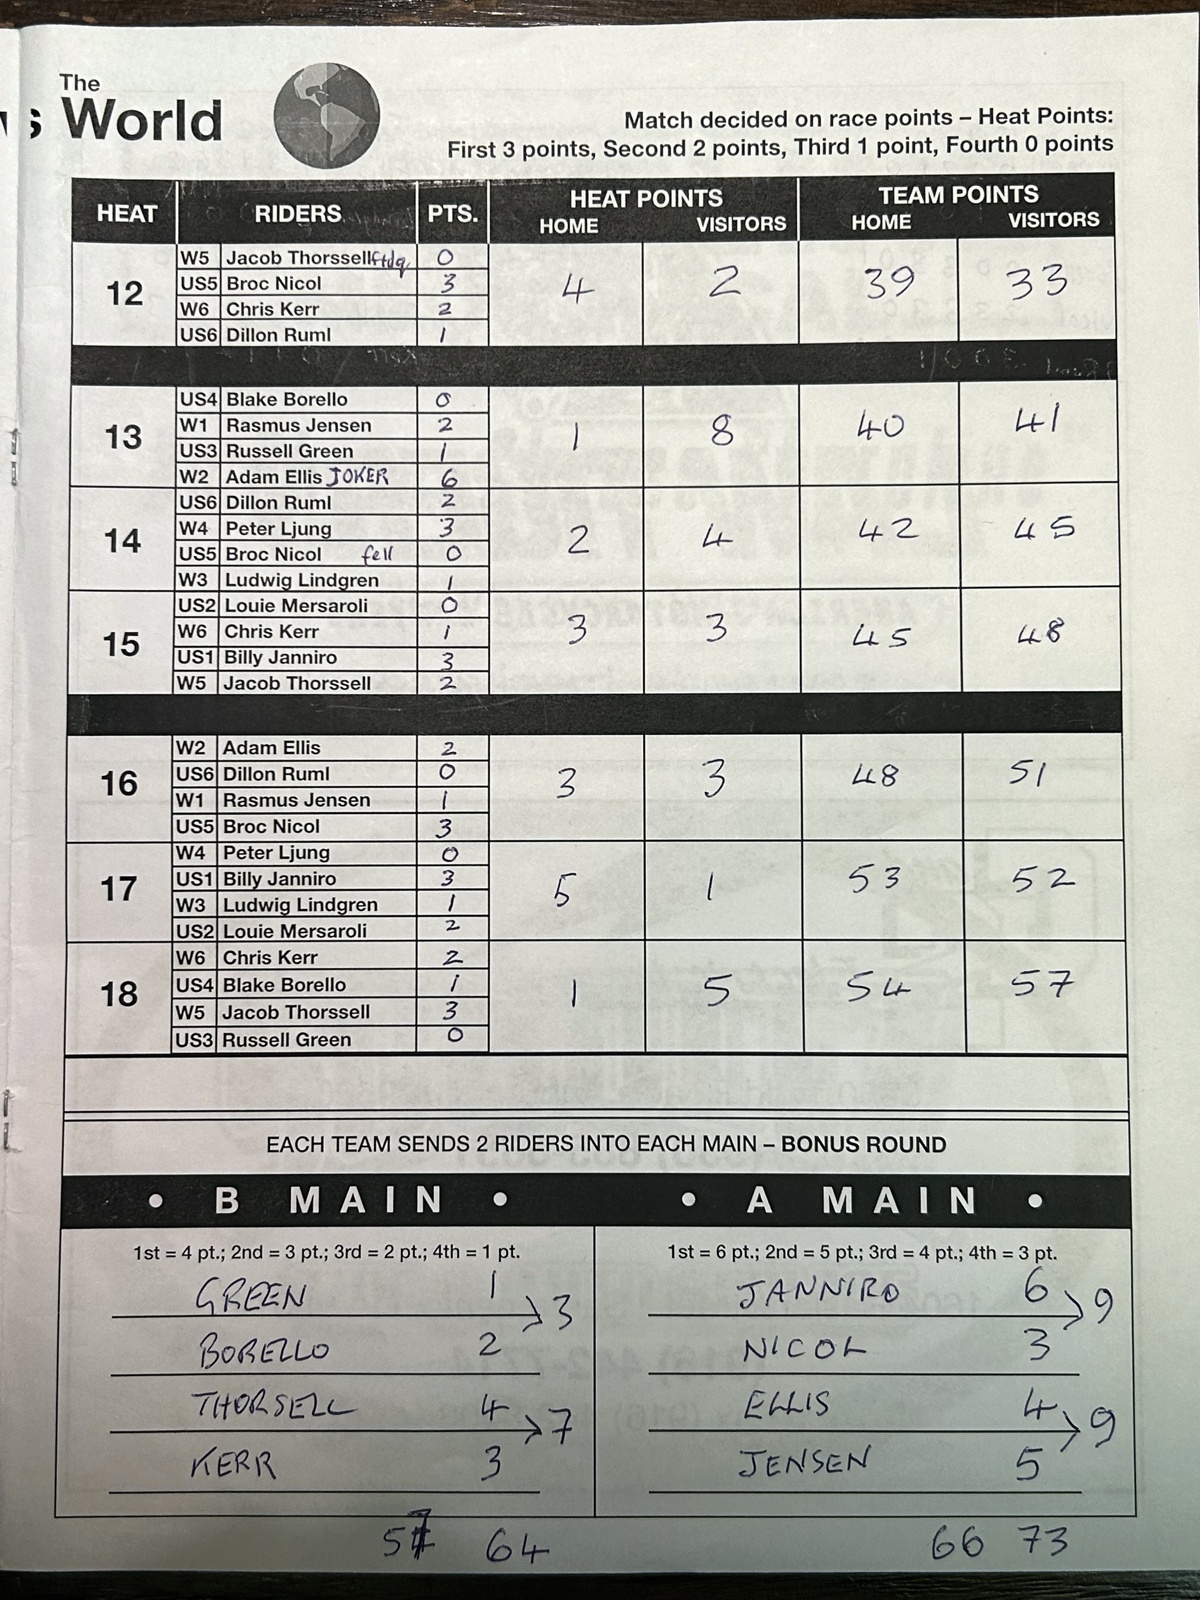 The
s World
Match decided on race points – Heat Points:
First 3 points, Second 2 points, Third 1 point, Fourth 0 points
HEAT RIDERS PTS. HEAT POINTS TEAM POINTS
HOME VISITORS HOME VISITORS
12 4 2 39 33
W5 Jacob Thorssell ftdq 0
US5 Broc Nicol 3
W6 Chris Kerr 2
US6 Dillon Ruml 1
13 1 8 40 41
US4 Blake Borello 0
W1 Rasmus Jensen 2
US3 Russell Green 1
W2 Adam Ellis JOKER 6
14 2 4 42 45
US6 Dillon Ruml 2
W4 Peter Ljung 3
US5 Broc Nicol fell 0
W3 Ludwig Lindgren 1
15 3 3 45 48
US2 Louie Mersaroli 0
W6 Chris Kerr 1
US1 Billy Janniro 3
W5 Jacob Thorssell 2
16 3 3 48 51
W2 Adam Ellis 2
US6 Dillon Ruml 0
W1 Rasmus Jensen 1
US5 Broc Nicol 3
17 5 1 53 52
W4 Peter Ljung 0
US1 Billy Janniro 3
W3 Ludwig Lindgren 1
US2 Louie Mersaroli 2
18 1 5 54 57
W6 Chris Kerr 2
US4 Blake Borello 1
W5 Jacob Thorssell 3
US3 Russell Green 0
EACH TEAM SENDS 2 RIDERS INTO EACH MAIN – BONUS ROUND
• B MAIN •
1st = 4 pt.; 2nd = 3 pt.; 3rd = 2 pt.; 4th = 1 pt.
GREEN 1
BORELLO 2
3
THORSELL 4
KERR 3
7
57 64
• A MAIN •
1st = 6 pt.; 2nd = 5 pt.; 3rd = 4 pt.; 4th = 3 pt.
JANNIRO 6
NICOL 3
9
ELLIS 4
JENSEN 5
9
66 73